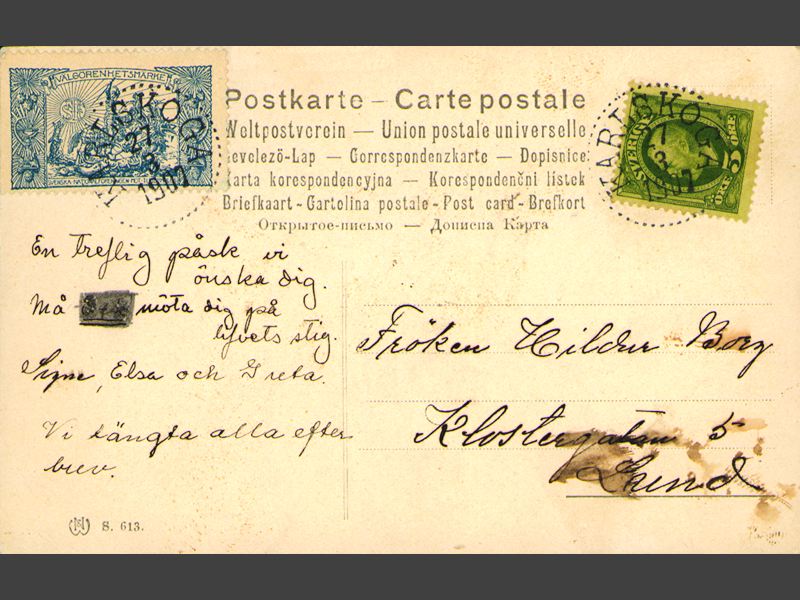 VÄLGÖRENHETSMÄRKE
KARLSKOGA
27
3
1907
Postkarte – Carte postale
Weltpostverein — Union postale universelle
Levelező-Lap — Correspondenzkarte — Dopisnice
Karta korespondencyjna — Korespondenční listek
Briefkaart – Cartolina postale – Post card – Brefkort
Открытое-письмо — Дописна Карта
KARLSKOGA
27
3
1907
SVERIGE
5
ÖRE
En treflig påsk vi
önska dig.
Må
möta dig på
lifvets stig.
Signe, Elsa och Greta.
Vi längta alla efter
brev.
Fröken Hildur Borg
Klostergatan 5
Lund
S. 613.